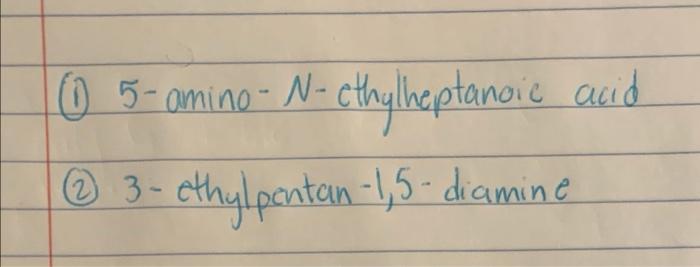 ① 5-amino-N-ethylheptanoic acid
② 3-ethylpentan-1,5-diamine